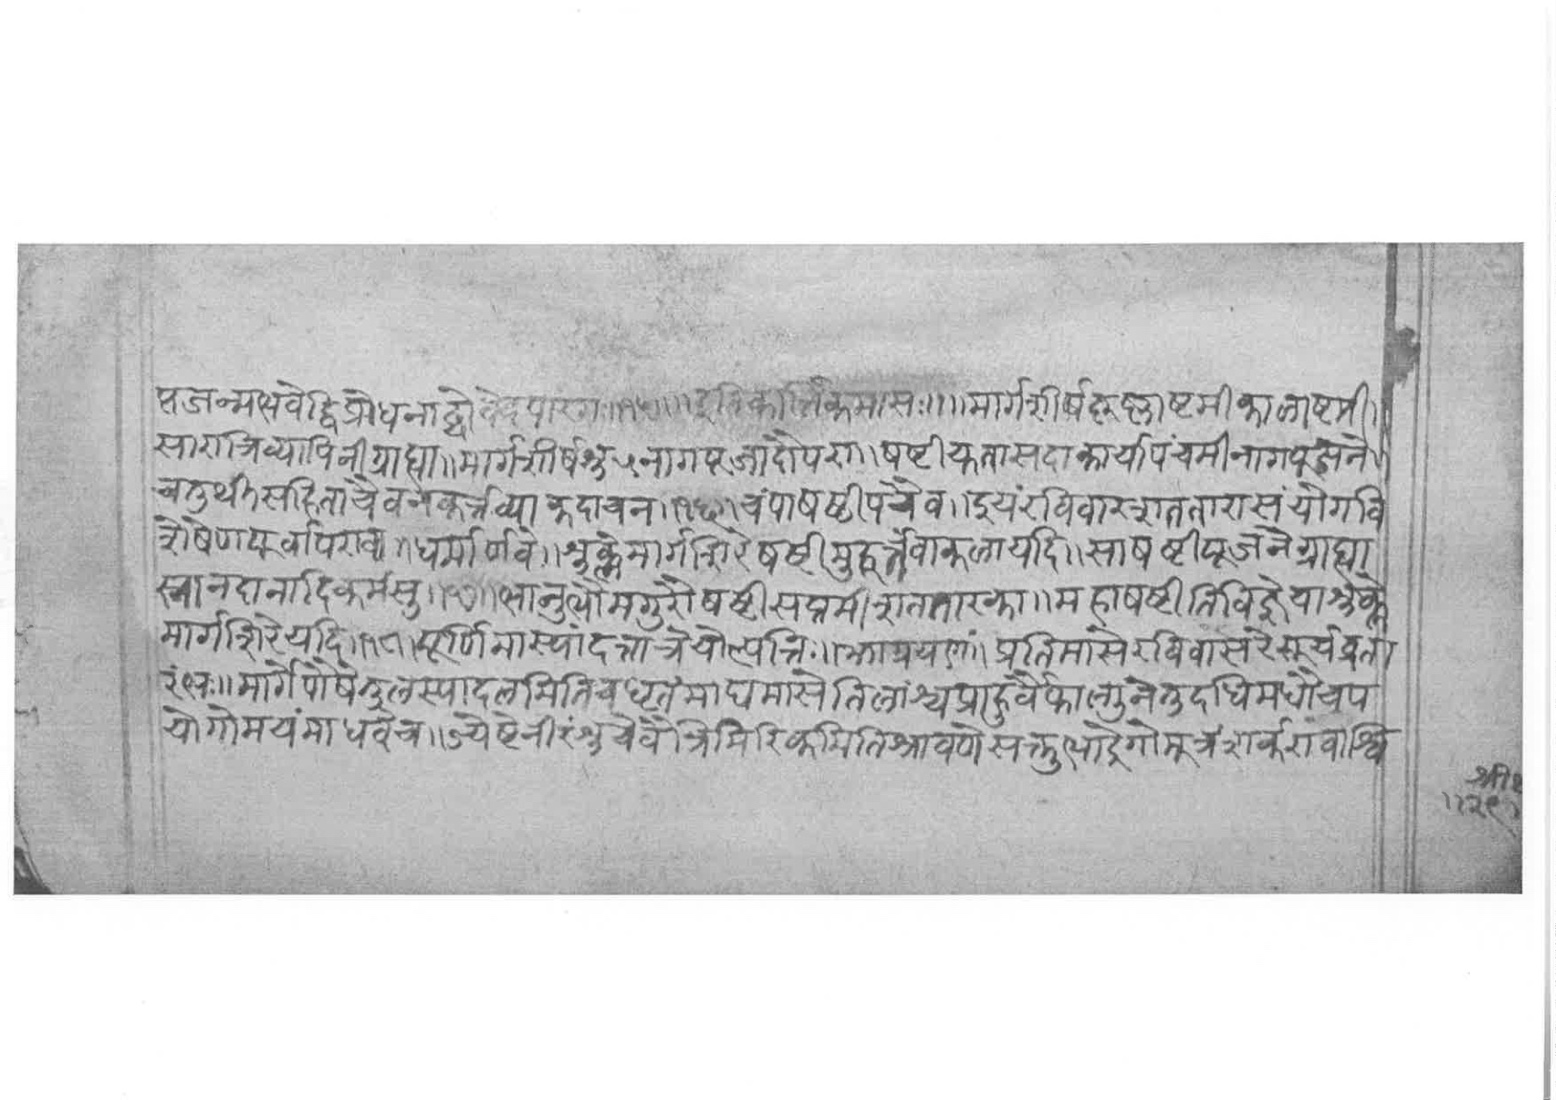 प्तजन्मसु वेद्विप्रोधनाढ्यो वेदपारगः ॥१५॥ इतिकार्तिकमासः ॥ ॥ मार्गशीर्षकृष्णाष्टमीकालाष्टमी ।
सारात्रिव्यापिनीग्राह्या ॥ मार्गशीर्षशु ५ नागपूजादौपरा ॥ षष्टीयुतासदाकार्यापंचमीनागपूजने ॥
चतुर्थीसहिताचैवनकर्त्तव्याकदाचन ॥ चंपाषष्टीपचैव ॥ इयंरविवारशततारासंयोगवि
शेषेणपूर्वापरावा ॥ धर्मार्णवे ॥ शुक्लेमार्गशिरेषष्टीमुहूर्त्तवाकलायदि ॥ साषष्टीपूजनेग्राह्या
स्नानदानादिकर्मसु ॥ भानुभौमगुरौषष्टीसप्तमीशततारका ॥ महाषष्टीतिविज्ञेयाशुक्ले
मार्गशिरेयदि ॥१८॥ पूर्णिमास्यांदत्तात्रेयोत्पत्तिः ॥ आग्रयणं ॥ प्रतिमासंरविवासरेसूर्यव्रता
रंभः ॥ मार्गेपौषेतुलस्पादलमितिचघृतंमाघमासेतिलांश्चप्राहुर्वैफाल्गुनेतुदधिमधौचप
योगोमयंमाधवेच ॥ ज्येष्टेनीरंशुचैवैत्रिमिरिकमितिश्रावणेसक्तुभाद्रेगोमूत्रंशर्करांवाश्वि
श्री
॥२९॥